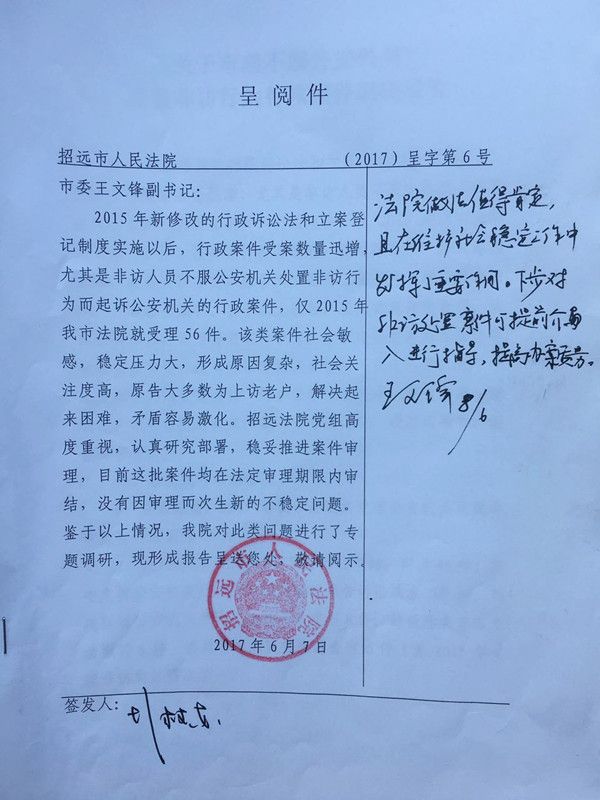 呈阅件
招远市人民法院 （2017）呈字第6号
市委王文锋副书记：
2015年新修改的行政诉讼法和立案登
记制度实施以后，行政案件受案数量迅增，
尤其是非访人员不服公安机关处置非访行
为而起诉公安机关的行政案件，仅2015年
我市法院就受理56件。该类案件社会敏
感，稳定压力大，形成原因复杂，社会关
注度高，原告大多数为上访老户，解决起
来困难，矛盾容易激化。招远法院党组高
度重视，认真研究部署，稳妥推进案件审
理，目前这批案件均在法定审理期限内审
结，没有因审理而次生新的不稳定问题。
鉴于以上情况，我院对此类问题进行了专
题调研，现形成报告呈送您处，敬请阅示。
招远市人民法院
2017年6月7日
法院做法值得肯定，
且在维护社会稳定工作中
发挥了重要作用。下步对
非访处置案件可提前介
入进行指导，提高办案质量。
王文锋 8/6
签发人：